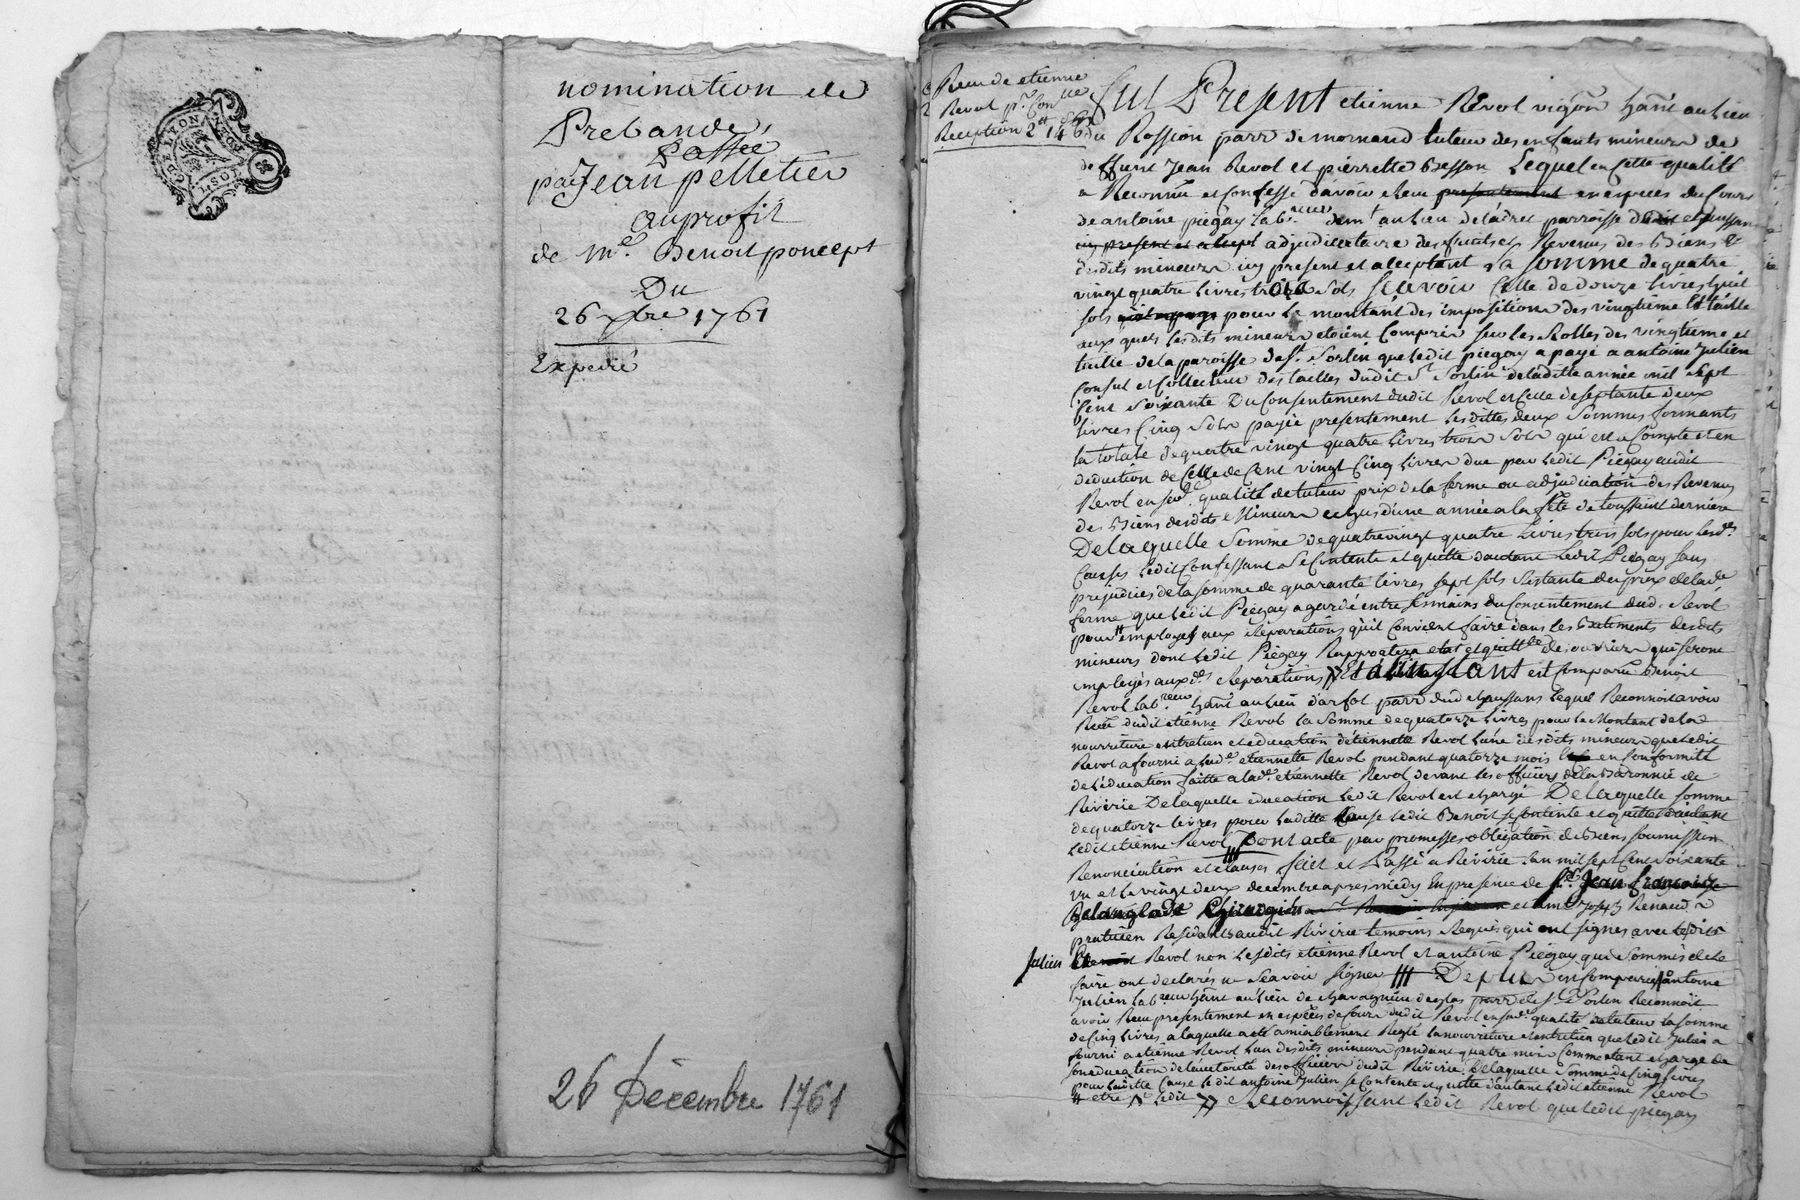 GDE LYON
nomination de
Prebande,
Passée
par Jean pelletier
au profit
de Me. Benoit poncept
Du
26 xbre 1761
Expedié
26 Décembre 1761
Receu de etienne
Revol
Reception
Fut Present etienne Revol vigon habt au lieu
de Rossion parr de mornand tuteur des enfants mineurs de
deffunt Jean Revol et pierrette Besson Lequel en cette qualité
a Reconnu et confessé d'avoir eu et receu presentement en especes du cours
de antoine piegay lab.reur demt au lieu de ladret parroisse
cy present et accept adjudicataire des fruits et Revenus des Biens
desdits mineurs icy present et acceptant La somme de quatre
vingt quatre livres trois sols scavoir Celle de douze livres huit
sols pour le montant des impositions des vingtieme et taille
aux quels lesdits mineurs etoient Compris sur les Rolles des vingtieme et
taille de la paroisse de St. Sorlin que ledit piegay a payé a antoine Julien
Consul et Collecteur des tailles dudit St Sorlin de laditte année mil sept
Cent Soixante Du Consentement dudit Revol et Celle de septante deux
livres Cinq Sols payée presentement lesdittes deux Sommes formants
la totale de quatre vingt quatre livres trois sols qui est a Compte et en
deduction de Celle de Cent vingt Cinq livres due par ledit Piegay audit
Revol en sad. qualité de tuteur prix de la ferme ou adjudication des Revenus
des Biens desdits Mineurs echus d'une année a la fête de toussaint derniere
De laquelle Somme de quatre vingt quatre livres trois sols pour lesd.
Causes ledit Confessant Se Contente et quitte d'autant Ledit Piegay Sans
prejudices de la somme de quarante livres sept sols Restante du prix de lade
ferme que ledit Piegay a gardé entre ses mains du Consentement dud. Revol
pour # employer aux Réparations qu'il Convient faire dans les Batiments desdits
mineurs dont ledit Piegay Rapportera etat et quittce de ouvriers qui seront
employés aux d. Réparations Et à L'instant est Comparu Benoit
Revol lab.reur habt au lieu d'arfol parr dud chaussans lequel Reconnoit avoir
Receu dudit etienne Revol la Somme de quatorze livres pour le Montant de la
nourriture entretien et education d'étiennette Revol l'une desdits mineurs que ledit
Revol a fourni a lade etiennette Revol pendant quatorze mois en Conformité
de l'éducation faitte a lade etiennette Revol devant les officiers de la Baronnie de
Riverie De laquelle education ledit Revol est chargé De laquelle somme
de quatorze livres pour laditte Cause ledit Benoit se contente et quitte d'autant
ledit etienne Revol Dont acte par promesses obligation de Biens soumissions
Renonciation et clauses fait et Passé a Riverie l'an mil sept Cent Soixante
un et le vingt deux decembre apres midy En presence de Sr. Jean francois
Delanglade Chirurgien et de me Joseph Renaud
praticien Residants audit Riverie temoins Requis qui ont signes avec lesdits
Julien Revol non lesdits etienne Revol et antoine Piegay qui Sommés de le
faire ont declarés ne Scavoir signer # Depuis est Comparu antoine
Julien lab.reur habt au lieu de parr de St. Sorlin Reconnoit
avoir Receu presentement en espèces de Cours dudit Revol en sad. qualité de tuteur la somme
de Cinq livres a laquelle a eté amiablement Reglé la nourriture et entretien que ledit Julien a
fourni a etienne Revol l'un desdits mineurs pendant quatre mois Comme etant chargé de
son education de l'autorité des officiers dudit Riverie De laquelle Somme de Cinq livres
pour laditte Cause ledit antoine Julien se Contente et quitte d'autant ledit etienne Revol
# etre ledit Reconnoissant ledit Revol que ledit piegay